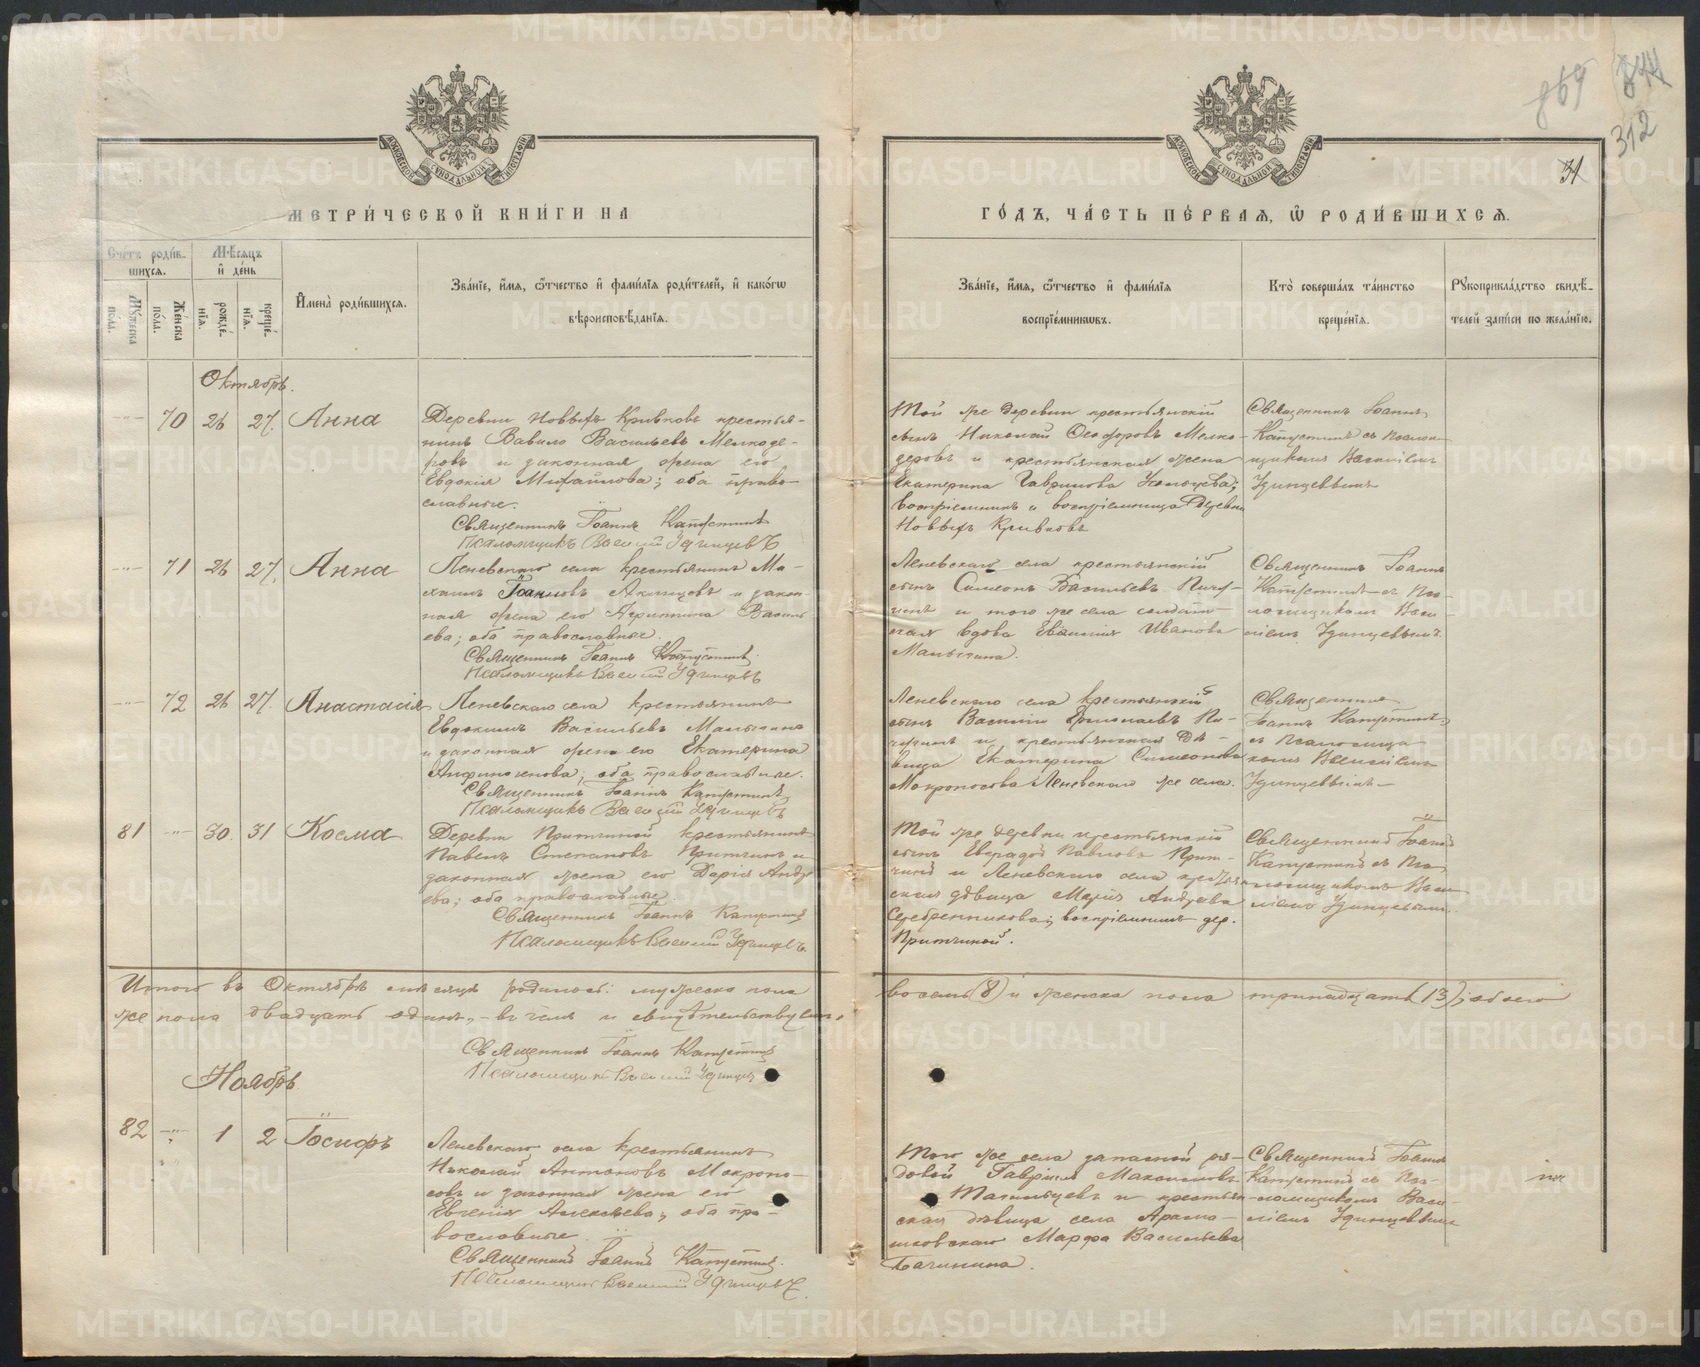 869
844
312
31
МОСКОВСКОЙ СѴНОДАЛЬНОЙ ТИПОГРАФІИ
МОСКОВСКОЙ СѴНОДАЛЬНОЙ ТИПОГРАФІИ
МЕТРИ́ЧЕСКОЙ КНИ́ГИ НА
ГО́ДЪ, ЧА́СТЬ ПЕ́РВАЯ, Ѡ РОДИ́ВШИХСѦ.
Сче́тъ роди́вшихсѧ.
Мꙋ́жеска по́ла.
Же́нска по́ла.
Мѣ́сѧцъ и҆ де́нь
рожде́нїѧ.
креще́нїѧ.
И҆мена̀ роди́вшихсѧ.
Зва́нїе, и҆́мѧ, ѻ҆́тчество и҆ фами́лїѧ роди́телей, и҆ како́гѡ
вѣроисповѣ́данїѧ.
Зва́нїе, и҆́мѧ, ѻ҆́тчество и҆ фами́лїѧ
воспрїе́мникѡвъ.
Кто̀ соверша́лъ та́инство
креще́нїѧ.
Рꙋкоприкла́дство свидѣ́-
телей за́писи по жела́нїю.
Октябрь.
-"- 70 26 27. Анна
Деревни Новыхъ Кривковъ крестья-
нинъ Вавило Васильевъ Мелкоде-
ровъ и законная жена его
Евдокия Михайлова; оба право-
славные.
Священникъ Іоаннъ Капустинъ
Псаломщикъ Василій Удинцевъ
Той же деревни крестьянскій
сынъ Николай Ѳеодоровъ Мелко-
деровъ и крестьянская жена
Екатерина Гаврилова
воспріемникъ и воспріемница деревни
Новыхъ Кривковъ
Священникъ Іоаннъ
Капустинъ съ псалом-
щикомъ Василіемъ
Удинцевымъ
-"- 71 26 27. Анна
Леневскаго села крестьянинъ Ма-
Іоанновъ и закон-
ная жена его Агриппина Василь
ева; оба православные.
Священникъ Іоаннъ Капустинъ.
Псаломщикъ Василій Удинцевъ
Леневскаго села крестьянскій
сынъ Симеонъ Васильевъ Пичу-
гинъ и того же села солдат-
ская вдова Евѳимія Иванова
Малыгина.
Священникъ Іоаннъ
Капустинъ съ пса-
ломщикомъ Васи-
ліемъ Удинцевымъ
-"- 72 26 27. Анастасія
Леневскаго села крестьянинъ
Евдокимъ Васильевъ Малыгинъ
и законная жена его Екатерина
Анфиногенова; оба православные.
Священникъ Іоаннъ Капустинъ
Псаломщикъ Василій Удинцевъ
Леневскаго села крестьянскій
сынъ Василій Ермолаевъ Пи-
чугинъ и крестьянская дѣ-
вица Екатерина Симеонова
Мокроносова Леневскаго же села.
Священникъ
Іоаннъ Капустинъ
съ псаломщи-
комъ Василіемъ
Удинцевымъ
81 -"- 30. 31 Косма
Деревни Притчиной крестьянинъ
Павелъ Степановъ Притчинъ и
законная жена его Дарія Андре
ева; оба православные.
Священникъ Іоаннъ Капустинъ
Псаломщикъ Василій Удинцевъ.
Той же деревни крестьянскій
сынъ Павловъ Прит-
чинъ и Леневскаго села крестьян
ская дѣвица Марія Андреева
Серебренникова; воспріемникъ дер.
Притчиной.
Священникъ Іоаннъ
Капустинъ съ пса
ломщикомъ Васи
ліемъ Удинцевымъ.
Итого въ Октябрѣ мѣсяцѣ родилось: мужеска пола восемь (8) и женска пола тринадцать (13); обоего
же пола двадцать одинъ, - въ чемъ и свидѣтельствуемъ.
Священникъ Іоаннъ Капустинъ
Псаломщикъ Василій Удинцевъ
Ноябрь
82 -"- 1 2 Іосифъ
Леневскаго села крестьянинъ
Николай Антоновъ Мокроно-
совъ и законная жена его
Евгенія Алексѣева; оба пра-
вославные
Священникъ Іоаннъ Капустинъ.
Псаломщикъ Василій Удинцевъ.
Того же села запасной ря-
довой Гавріилъ
и крестьян
ская дѣвица села Арама-
шковскаго Марѳа Васильева
Священникъ Іоаннъ
Капустинъ съ пса-
ломщикомъ Васи-
ліемъ Удинцевымъ
METRIKI.GASO-URAL.RU